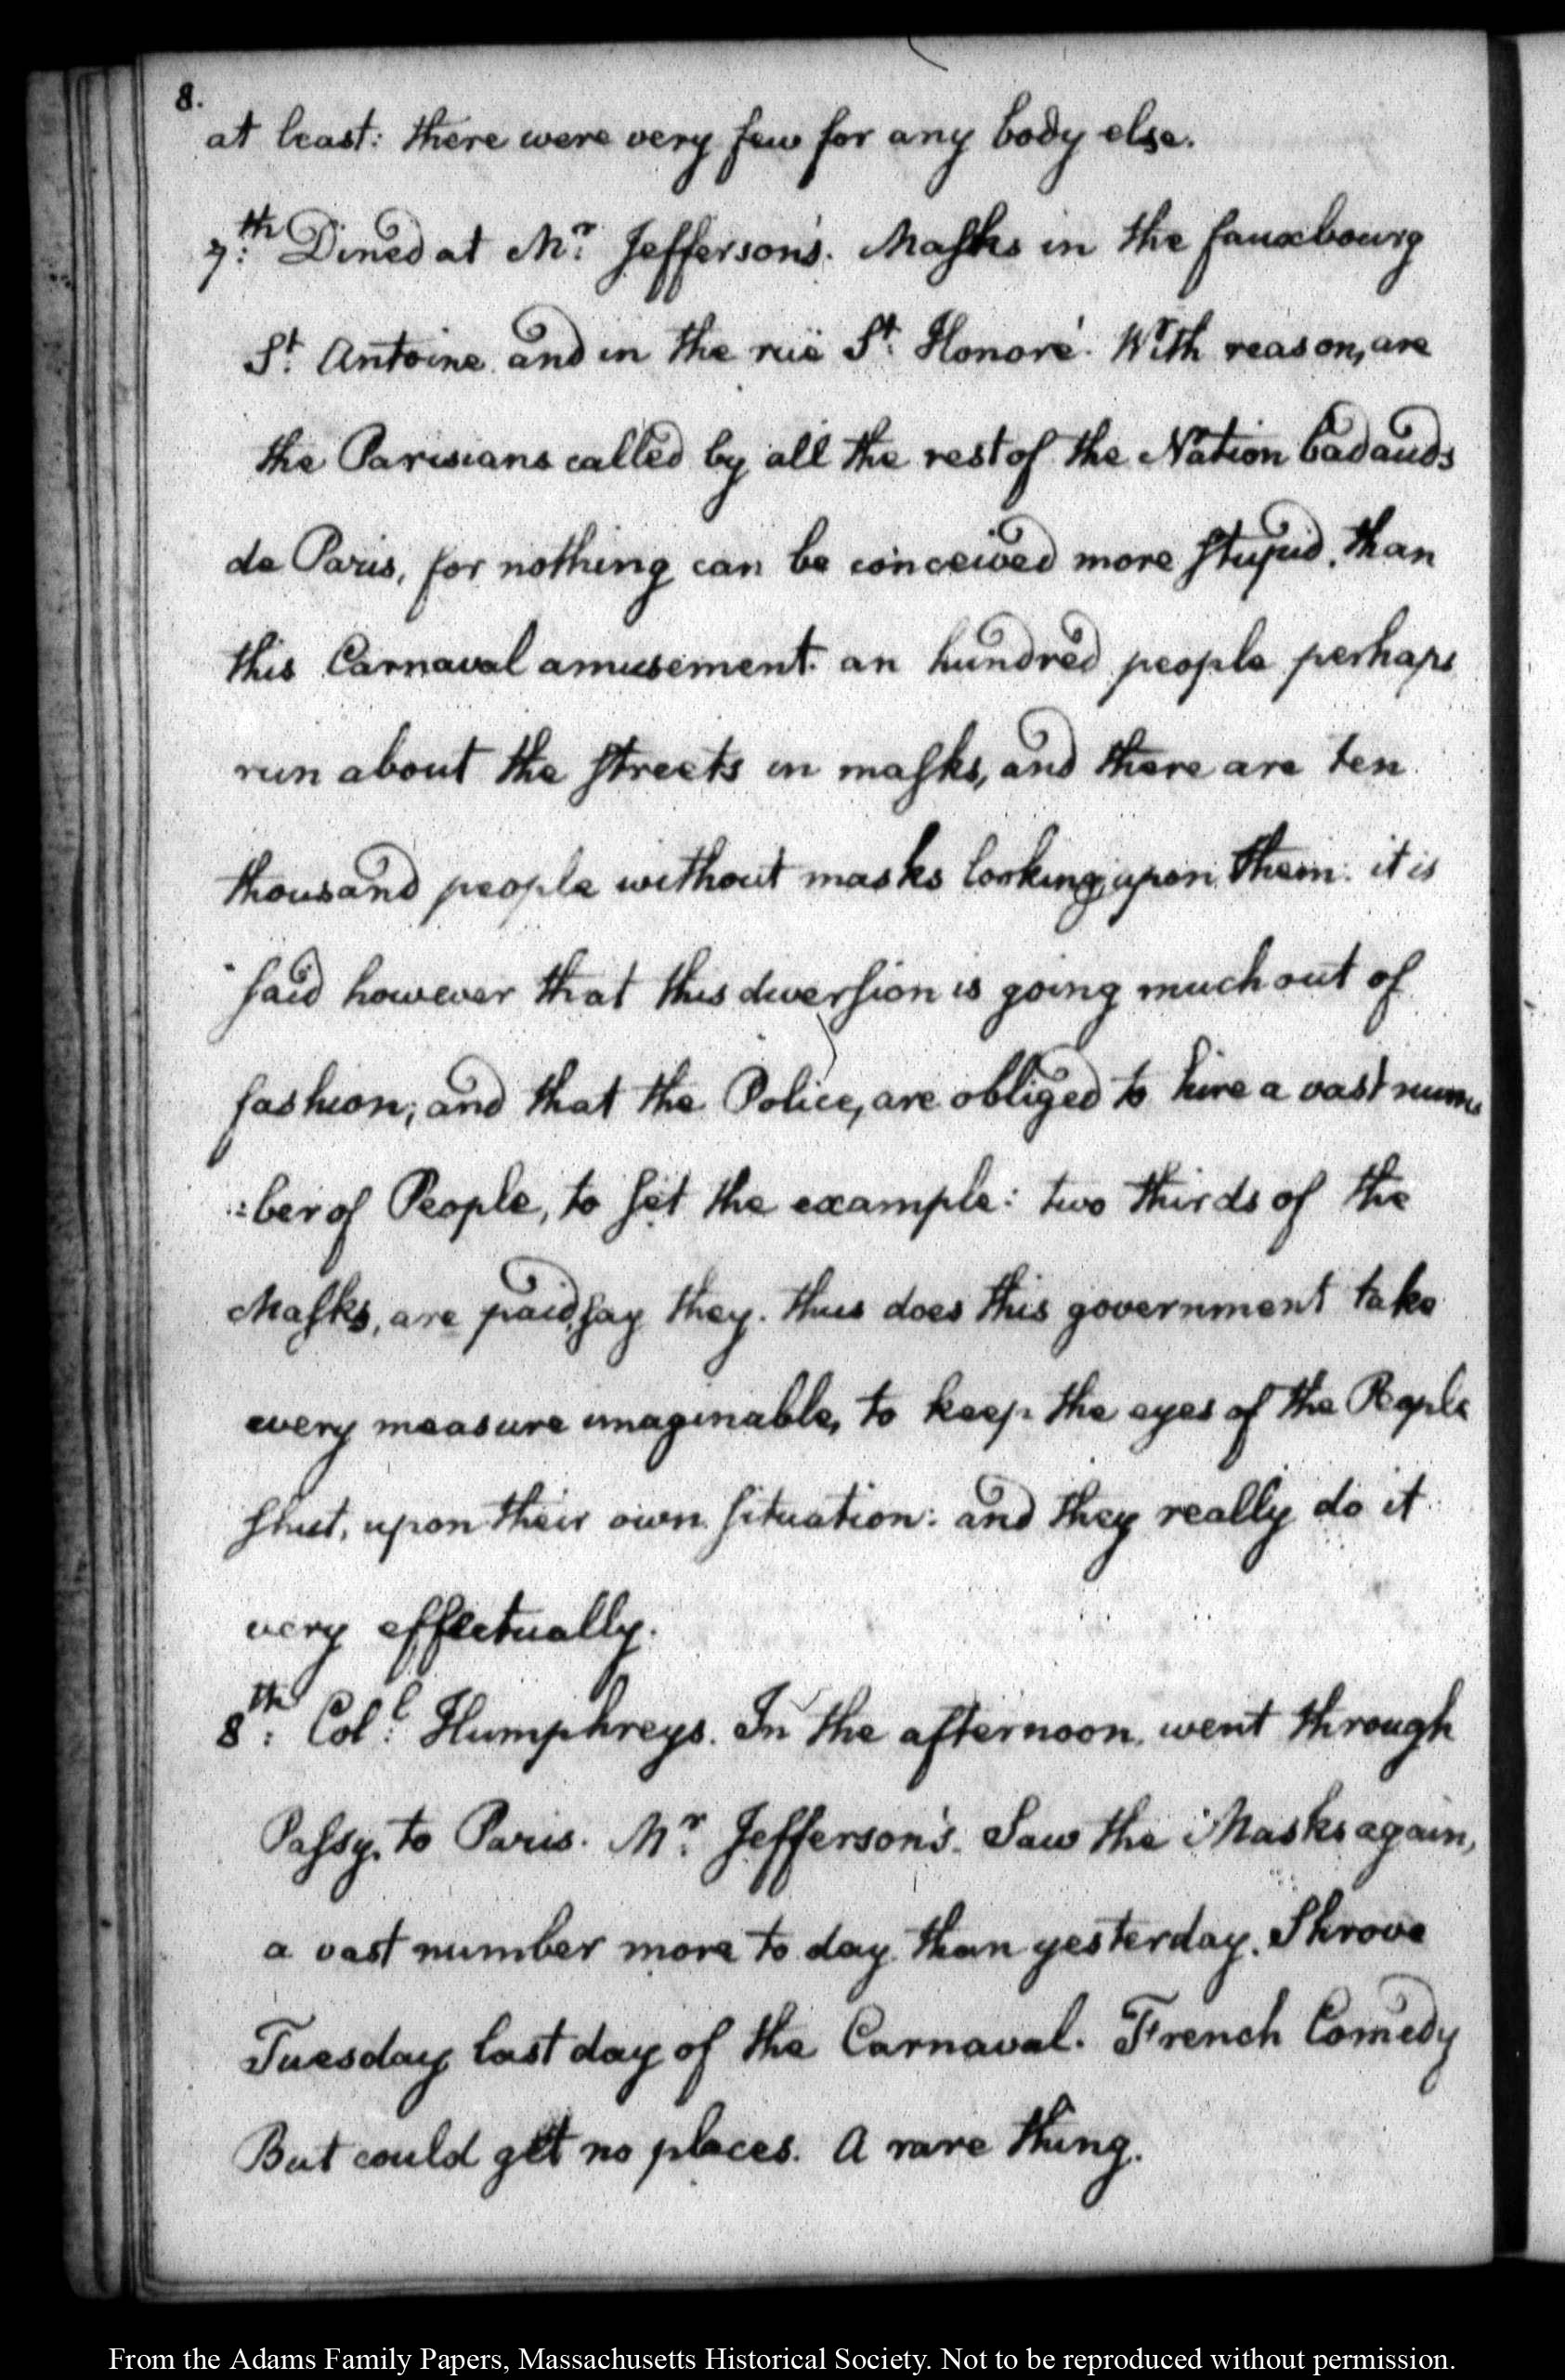 8.
at least: there were very few for any body else.
7th: Dined at Mr: Jefferson's. Maſks in the fauxbourg
St: Antoine and in the ruë St: Honoré. With reason, are
the Parisians called by all the rest of the Nation badauds
de Paris, for nothing can be conceived more ſtupid, than
this Carnaval amusement. an hundred people perhaps
run about the ſtreets in maſks, and there are ten
thousand people without masks looking upon them: it is
ſaid however that this diverſion is going much out of
fashion, and that the Police, are obliged to hire a vast num
:ber of People, to ſet the example: two thirds of the
Maſks, are paid, ſay they. thus does this government take
every measure imaginable, to keep the eyes of the People
ſhut, upon their own ſituation: and they really do it
very effectually.
8th: Coll: Humphreys. In the afternoon, went through
Paſsy, to Paris. Mr: Jefferson's. Saw the Masks again,
a vast number more to day than yesterday. Shrove
Tuesday last day of the Carnaval. French Comedy
But could get no places. A rare thing.
From the Adams Family Papers, Massachusetts Historical Society. Not to be reproduced without permission.